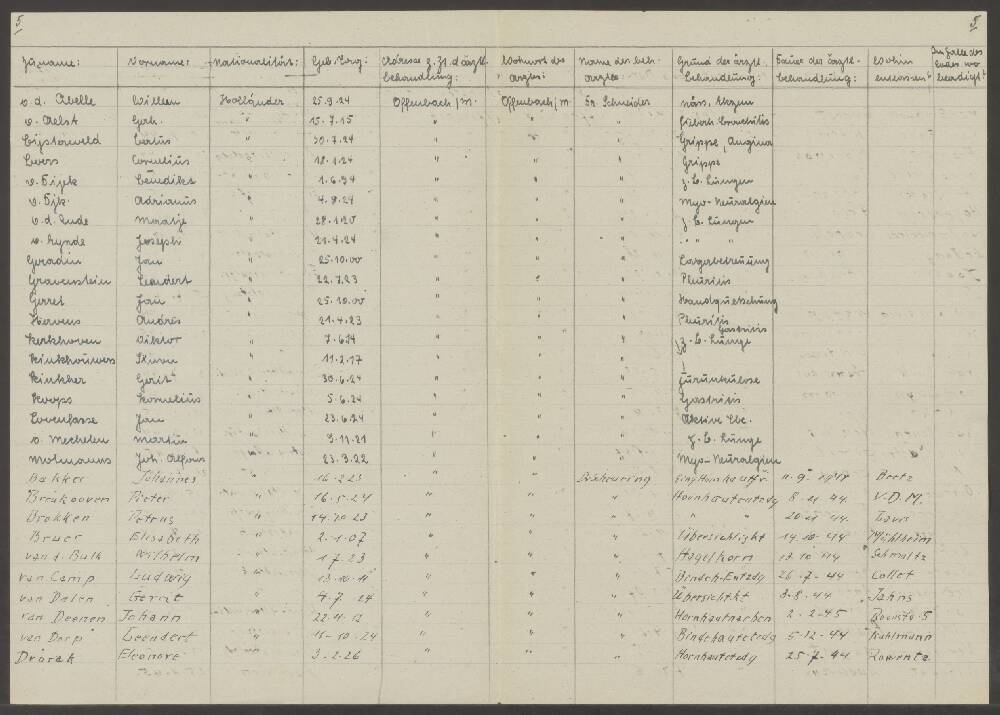 5 5
Zuname: Vorname: Nationalität: Geb. Adresse z. Zt. d. ärztl. Behandlung: Wohnort des Arztes: Name des beh. Arztes Grund der ärztl. Behandlung: Dauer der ärztl. Behandlung: Wohin entlassen: Im Falle des Todes wo beerdigt
v. d. Abelle Willem Holländer 25.9.24 Offenbach/M. Offenbach/M. Dr. Schneider
v. Aelst Gerh. " 15.7.15 " " "
Bertus " 30.7.24 " " " Grippe, Angina
Evers Cornelius " 18.1.24 " " " Grippe
Benedikt " 1.6.24 " " " z. B. Lungen
v. Adrianus " 4.8.24 " " " Myo-Neuralgien
v. d. Maatje " 28.1.20 " " " z. B. Lungen
Joseph " 21.4.24 " " " " " "
Geradin Jan " 25.10.00 " " " Lagerbetreuung
Gravenstein Leendert " 22.7.23 " " " Pleuritis
Gerret Jan " 25.10.00 " " " Handquetschung
Hervus Andres " 21.4.23 " " " Pleuritis Gastritis
Kerkhoven Viktor " 7.6.24 " " " z. B. Lunge
Kinkhouwers " 11.2.17 " " "
Kinkher Gerit " 30.6.24 " " " Furunkulose
Koops Kornelius " 5.6.24 " " " Gastritis
Lovenfasse Jan " 23.6.24 " " " Aktive Tbc.
v. Mechelen Martin " 9.11.21 " " " z. B. Lunge
Molmanns Joh. Alfons " 23.3.22 " " " Myo-Neuralgien
Bakker Johannes " 16.2.23 " " Dr. Scheuring
Breukooven Pieter " 16.5.24 " " " Hornhautentzdg 8-11 44. V.D.M.
Brokken Petrus " 14.10 23 " " " " " 20-11 44.
Bruer Elisabeth " 2.1.07 " " " Übersichtigkt 14.10-44 Mühlheim
van d. Bulk Wilhelm " 1 7.23 " " " Hagelkorn 13 10 44 Schmaltz
van Camp Ludwig " 13.10.11 " " " Bindeh-Entzdg 26-7-44 Collet
van Dalen Gerrit " 4.7.24 " " " Übersichtkt 3-8-44 Jahns
van Deenen Johann " 22.11.12 " " " Hornhautnarben 2-2-45
van Dorp Leendert " 11-10.24 " " " Bindehautetzdg 5-12-44 Kuhlmann
Drårek Eleonore 3-2-26 " " " Hornhautetzdg 25-7-44